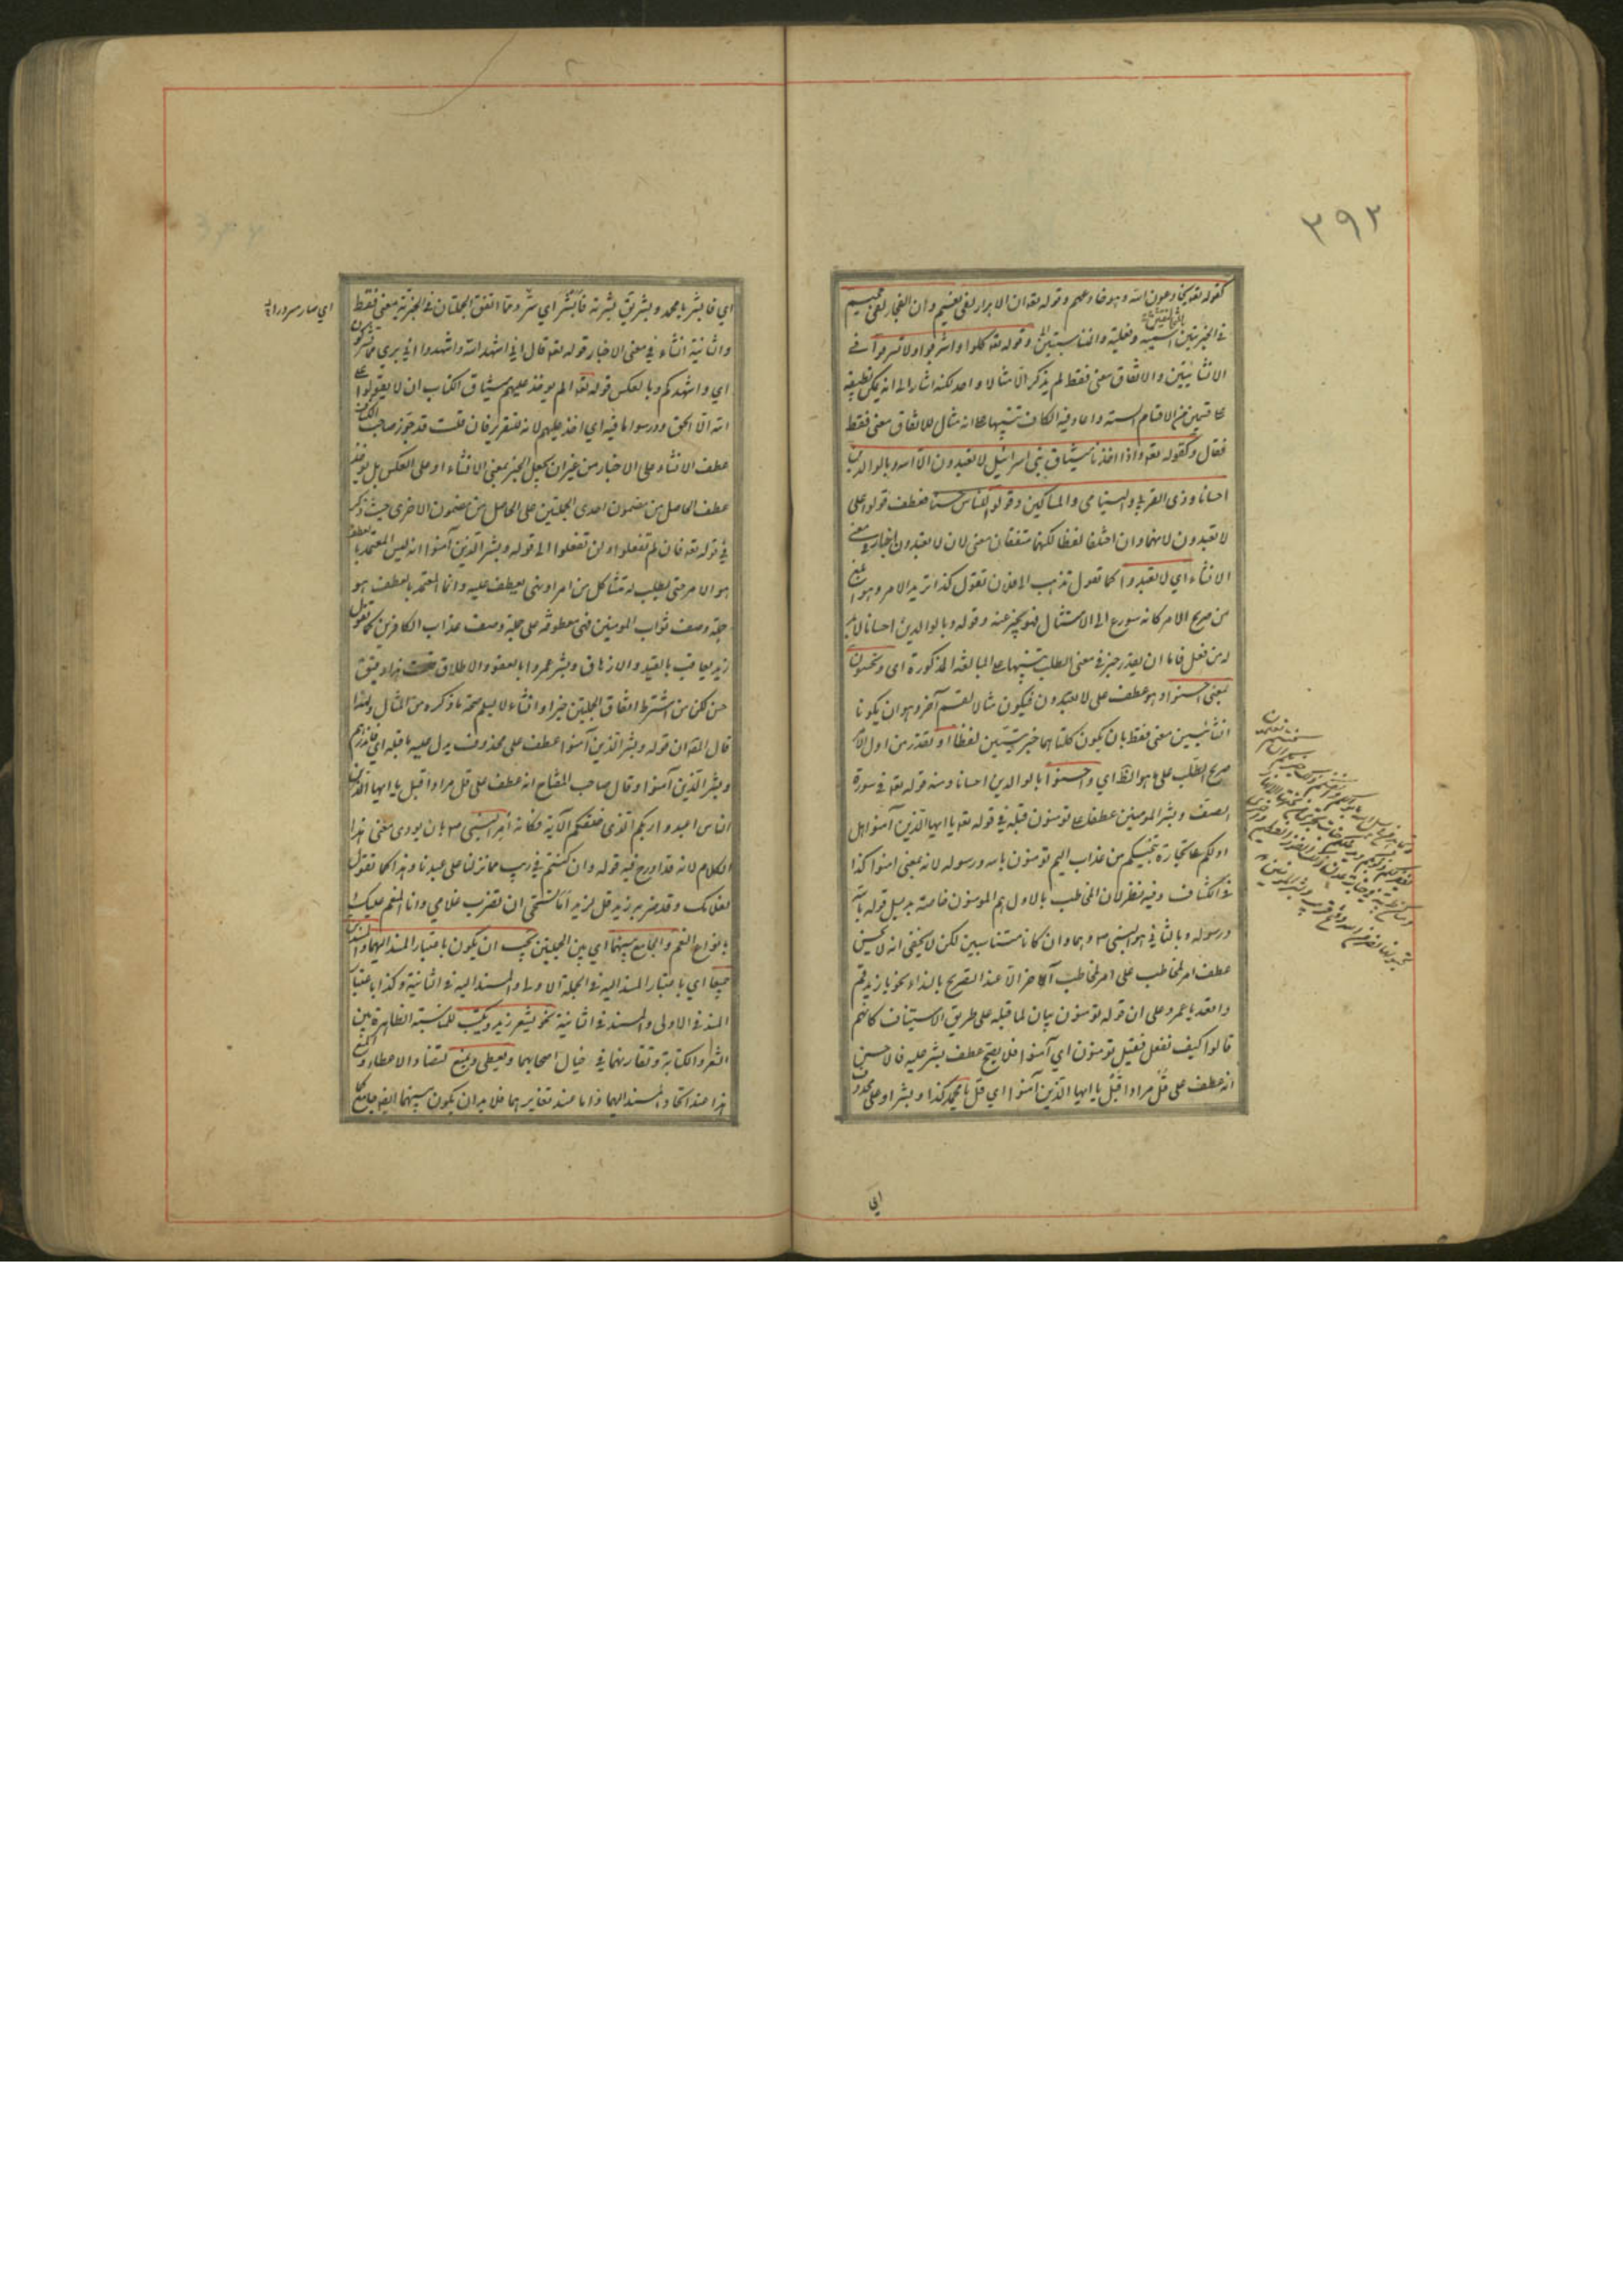 ٣٩٢
كقوله تعه يخادعون الله وهو خادعهم وقوله تعه ان الابرار لفي نعيم وان الفجار لفي جحيم
في الخبريتين اسمية وفعلية والمتناسبتين وقوله تعه كلوا واشربوا ولا تسرفوا في
الانشائيتين والاتفاق معنى فقط لم يذكر الا مثالا واحدا لكنه اشار الى انه يمكن تطبيقه
على قسمين من الاقسام الستة واعاد فيه الكاف تنبيها على انه مثال للاتفاق معنى فقط
فقال وكقوله تعه واذا اخذنا ميثاق بني اسرائيل لا تعبدون الا الله وبالوالدين
احسانا وذي القربى واليتامى والمساكين وقولوا للناس حسنا فعطف قولوا على
لا تعبدون لانهما وان اختلفا لفظا لكنهما متفقان معنى لان لا تعبدون اخبار في معنى
الانشاء اي لا تعبدوا كما تقول تذهب الى فلان تقول كذا تريد الامر وهو ابلغ
من صريح الامر كانه سورع الى الامتثال فهو يخبر عنه وقوله وبالوالدين احسانا لابد
له من فعل فاما ان يقدر خبر في معنى الطلب تنبيها على المبالغة المذكورة اي وتحسنون
بمعنى احسنوا وهو عطف على لا تعبدون فيكون مثالا لقسم آخر وهو ان يكونا
انشائيتين معنى فقط بان يكون كلتاهما خبريتين لفظا او يقدر من اول الامر
صريح الطلب على ما هو الظ اي واحسنوا بالوالدين احسانا ومنه قوله تعه في سورة
الصف وبشر المومنين عطفا على تومنون قبله في قوله تعه يا ايها الذين آمنوا هل
ادلكم على تجارة تنجيكم من عذاب اليم تومنون بالله ورسوله لانه بمعنى امنوا كذا
في الكشاف وفيه نظر لان المخاطب بالاول هم المومنون خاصة بدليل قوله بالله
ورسوله وبالثاني هو النبي ص وهما وان كانا متناسبين لكن لا يخفى انه لا يحسن
عطف امر لمخاطب على امر لمخاطب آخر الا عند التصريح بالنداء نحو يا زيد قم
واقعد يا عمرو على ان قوله تومنون بيان لما قبله على طريق الاستيناف كانهم
قالوا كيف نفعل فقيل تومنون اي آمنوا فلا يصح عطف بشر عليه فالاحسن
انه عطف على قل مرادا قبل يا ايها الذين آمنوا اي قل يا محمد كذا وبشر او على محذوف
اي
اي فابشر يا محمد وبشر يق بشرته فابشر اي سر ومما اتفق الجملتان في الخبرية معنى فقط
والثانية انشاء في معنى الاخبار قوله تعه قال اني اشهد الله واشهدوا اني بري مما تشركون
اي واشهدكم وبالعكس قوله تعه الم يوخذ عليهم ميثاق الكتاب ان لا يقولوا على
الله الا الحق ودرسوا ما فيه اي اخذ عليهم لانه للتقرير فان قلت قد جوز صاحب الكشاف
عطف الانشاء على الاخبار من غير ان يجعل الخبر بمعنى الانشاء او على العكس بل يوخذ
عطف الحاصل من مضمون احدى الجملتين على الحاصل من مضمون الاخرى حيث ذكر
في قوله تعه فان لم تفعلوا ولن تفعلوا الى قوله وبشر الذين آمنوا انه ليس المعتمد بالعطف
هو الامر حتى يطلب له مشاكل من امر او نهي يعطف عليه وانما المعتمد بالعطف هو
جملة وصف ثواب المومنين فهي معطوفة على جملة وصف عذاب الكافرين كما تقول
زيد يعاقب بالقيد والازهاق وبشر عمروا بالعفو والاطلاق قلت هذا دقيق
حسن لكن من اشترط اتفاق الجملتين خبرا وانشاء لا يسلم صحة ما ذكره من المثال ولهذا
قال المص ان قوله وبشر الذين آمنوا عطف على محذوف يدل عليه ما قبله اي فانذرهم
وبشر الذين آمنوا وقال صاحب المفتاح انه عطف على قل مرادا قبل يا ايها
الناس اعبدوا ربكم الذي خلقكم الآية فكانه امر النبي ص بان يودي معنى هذا
الكلام لانه قد ادرج فيه قوله وان كنتم في ريب مما نزلنا على عبدنا وهذا كما تقول
لغلامك وقد ضربه زيد قل لزيد اما تستحي ان تضرب غلامي وانا المنعم عليك
بانواع النعم والجامع بينهما اي بين الجملتين يجب ان يكون باعتبار المسند اليهما والمسندين
جميعا اي باعتبار المسند اليه في الجملة الاولى والمسند اليه في الثانية وكذا باعتبار
المسند في الاولى والمسند في الثانية نحو يشعر زيد ويكتب للمناسبة الظاهرة بين
الشعر والكتابة وتقارنهما في خيال اصحابهما ويعطي ويمنع لتضاد الاعطاء والمنع
هذا عند اتحاد المسند اليهما واما عند تغايرهما فلا بد ان يكون بينهما ايضا جامع كما
اي صار سرورا